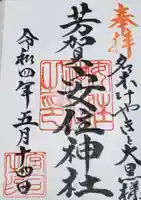 奉拝
名木けやきと大黒様
芳賀之安住神社
令和四年五月十四日